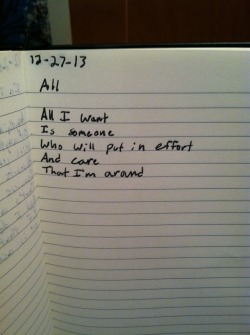 12-27-13
All
All I want
Is someone
Who will put in effort
And care
That I'm around